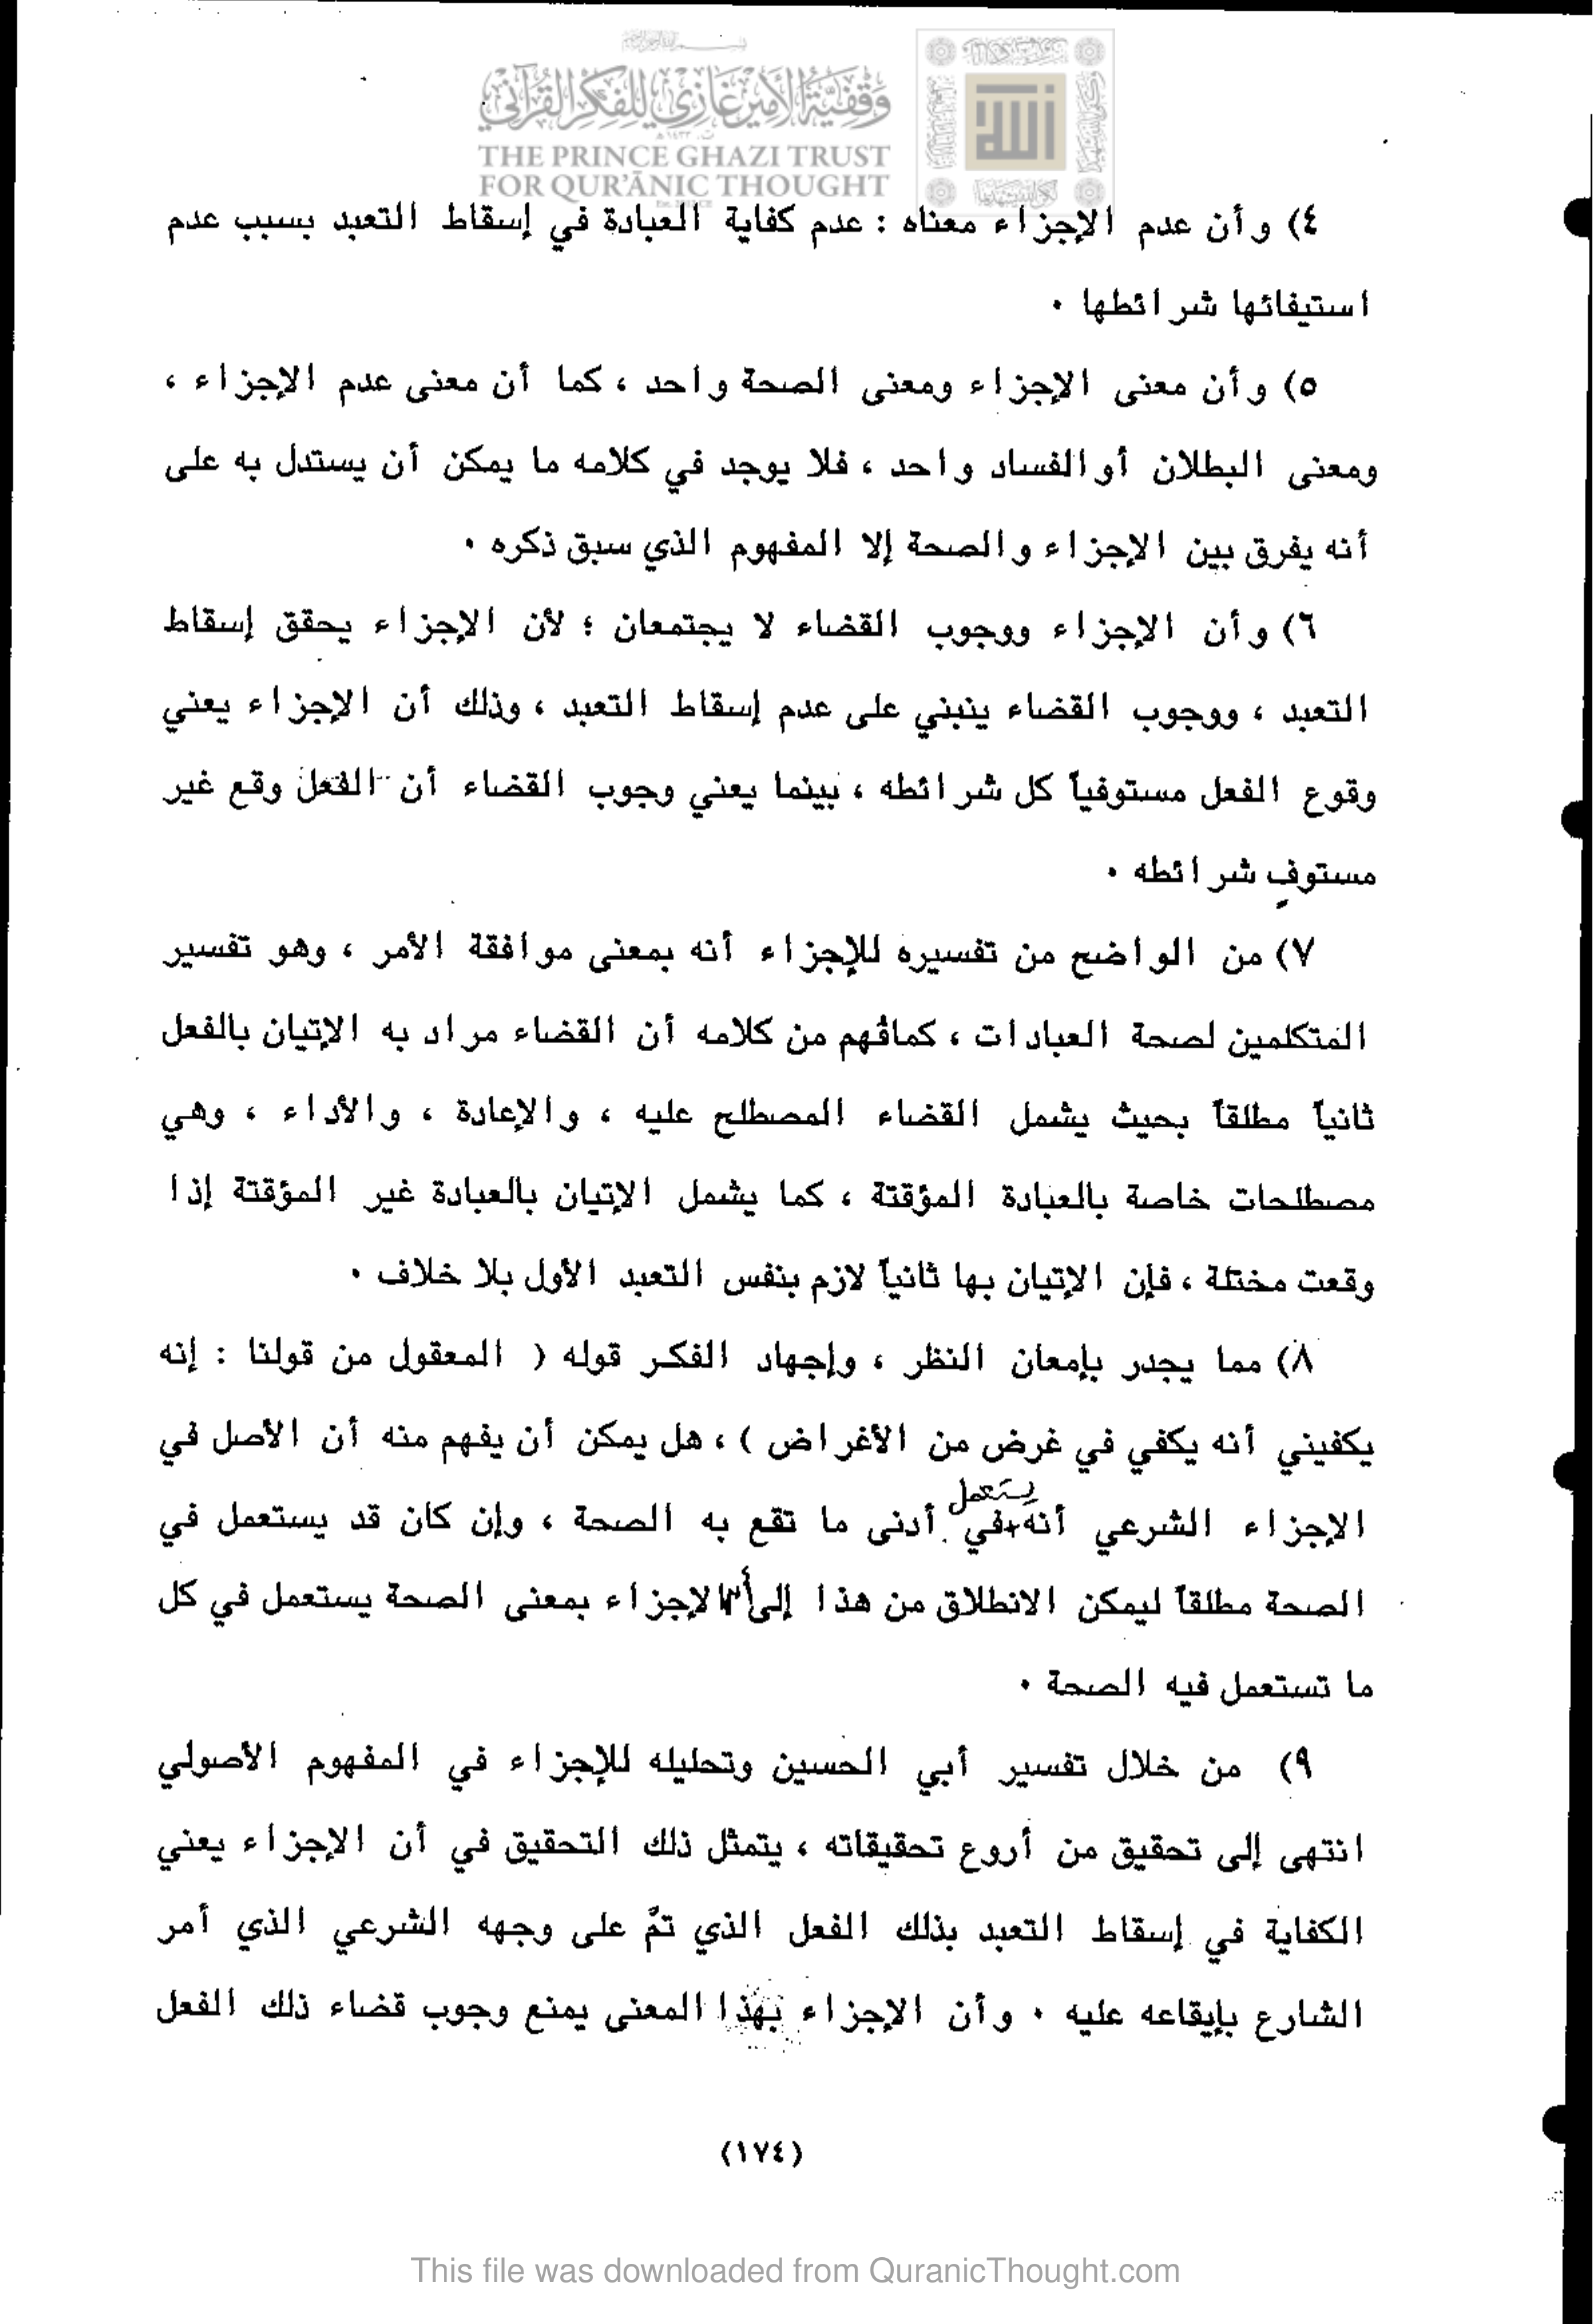 وقفية الأمير غازي للفكر القرآني
THE PRINCE GHAZI TRUST
FOR QUR'ĀNIC THOUGHT
٤) وأن عدم الإجزاء معناه : عدم كفاية العبادة في إسقاط التعبد بسبب عدم
استيفائها شرائطها ٠
٥) وأن معنى الإجزاء ومعنى الصحة واحد ، كما أن معنى عدم الإجزاء ،
ومعنى البطلان أوالفساد واحد ، فلا يوجد في كلامه ما يمكن أن يستدل به على
أنه يفرق بين الإجزاء والصحة إلا المفهوم الذي سبق ذكره ٠
٦) وأن الإجزاء ووجوب القضاء لا يجتمعان ؛ لأن الإجزاء يحقق إسقاط
التعبد ، ووجوب القضاء ينبني على عدم إسقاط التعبد ، وذلك أن الإجزاء يعني
وقوع الفعل مستوفياً كل شرائطه ، بينما يعني وجوب القضاء أن الفعل وقع غير
مستوفٍ شرائطه ٠
٧) من الواضح من تفسيره للإجزاء أنه بمعنى موافقة الأمر ، وهو تفسير
المتكلمين لصحة العبادات ، كمافُهم من كلامه أن القضاء مراد به الإتيان بالفعل
ثانياً مطلقاً بحيث يشمل القضاء المصطلح عليه ، والإعادة ، والأداء ، وهي
مصطلحات خاصة بالعبادة المؤقتة ، كما يشمل الإتيان بالعبادة غير المؤقتة إذا
وقعت مختلة ، فإن الإتيان بها ثانياً لازم بنفس التعبد الأول بلا خلاف ٠
٨) مما يجدر بإمعان النظر ، وإجهاد الفكر قوله ( المعقول من قولنا : إنه
يكفيني أنه يكفي في غرض من الأغراض ) ، هل يمكن أن يفهم منه أن الأصل في
الإجزاء الشرعي أنه يستعمل في أدنى ما تقع به الصحة ، وإن كان قد يستعمل في
الصحة مطلقاً ليمكن الانطلاق من هذا إلى أن الإجزاء بمعنى الصحة يستعمل في كل
ما تستعمل فيه الصحة ٠
٩) من خلال تفسير أبي الحسين وتحليله للإجزاء في المفهوم الأصولي
انتهى إلى تحقيق من أروع تحقيقاته ، يتمثل ذلك التحقيق في أن الإجزاء يعني
الكفاية في إسقاط التعبد بذلك الفعل الذي تمَّ على وجهه الشرعي الذي أمر
الشارع بإيقاعه عليه ٠ وأن الإجزاء بهذا المعنى يمنع وجوب قضاء ذلك الفعل
(١٧٤)
This file was downloaded from QuranicThought.com